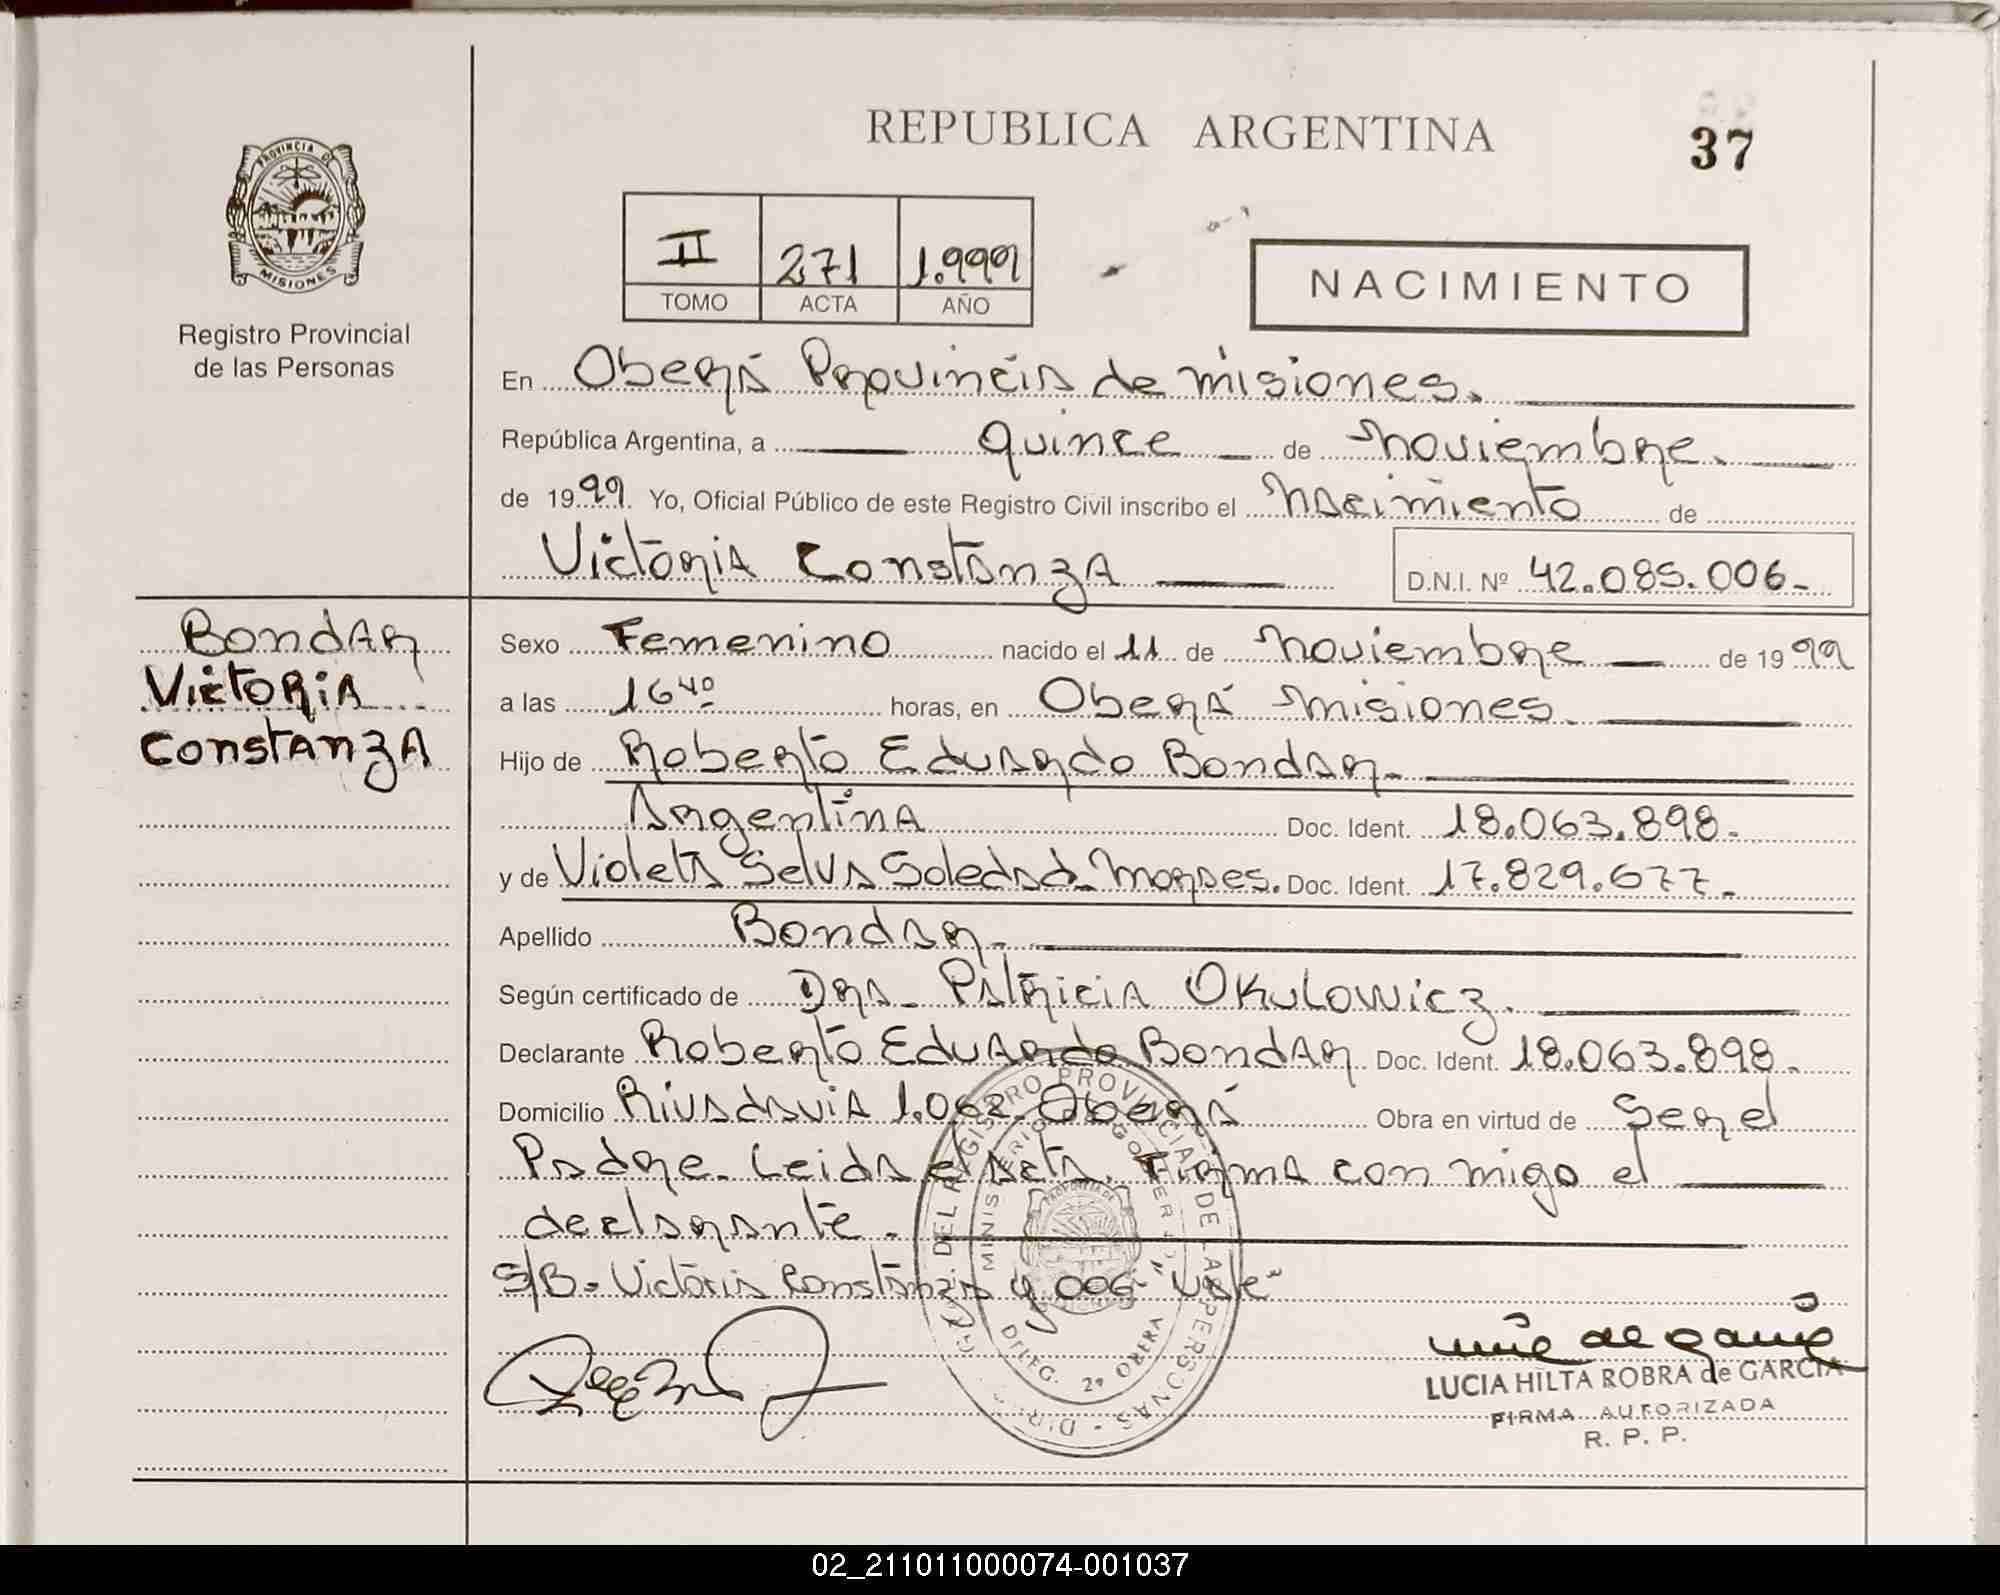 REPUBLICA ARGENTINA
37
PROVINCIA DE
MISIONES
Registro Provincial
de las Personas
II 271 1.999
TOMO ACTA AÑO
NACIMIENTO
En Oberá Provincia de Misiones.
República Argentina, a quince de Noviembre.
de 1999. Yo, Oficial Público de este Registro Civil inscribo el Nacimiento de
Victoria Constanza D.N.I. Nº 42.085.006-
Bondar
Victoria
Constanza
Sexo Femenino nacido el 11 de Noviembre de 1999
a las 16⁴⁰ horas, en Oberá Misiones.
Hijo de Roberto Eduardo Bondar-
Argentina Doc. Ident. 18.063.898.-
y de Violeta Selva Soledad Moraes. Doc. Ident. 17.829.677.-
Apellido Bondar.-
Según certificado de Dra. Patricia Okulowicz.
Declarante Roberto Eduardo Bondar Doc. Ident. 18.063.898.
Domicilio Rivadavia 1.062. Oberá Obra en virtud de Ser el
Padre. Leida el Acta, Firma con migo el
declarante.
S/B= Victoria Constanza y 006 "Vale"
DIR. GRAL. DEL REGISTRO PROVINCIAL DE LAS PERSONAS
MINISTERIO GOBIERNO
DELEG. 2ª OBERA
LUCIA HILTA ROBRA de GARCIA
FIRMA AUTORIZADA
R. P. P.
02_211011000074-001037